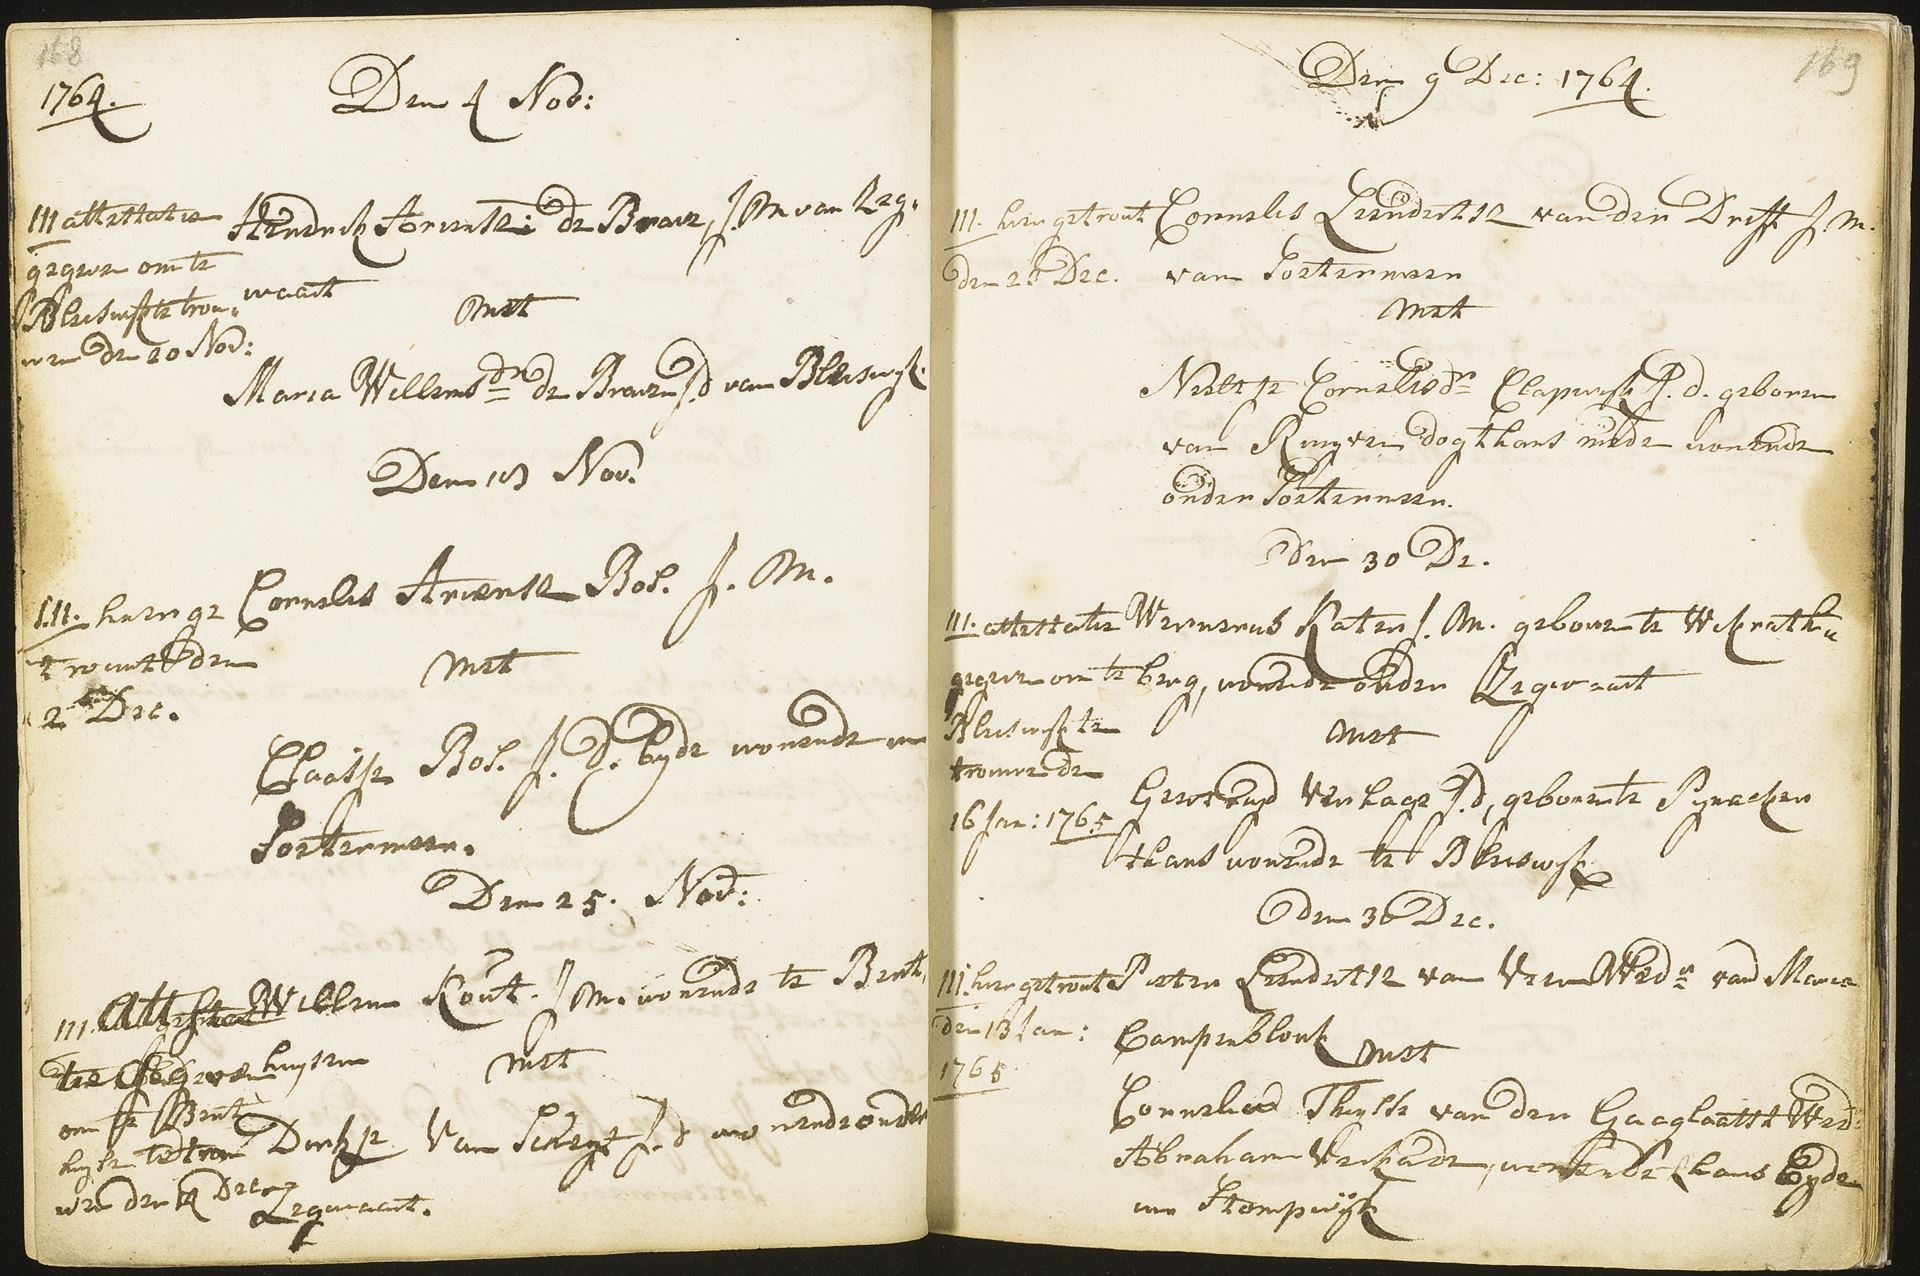 168
1764.
Den 4 Nov:
III attestatie
gegeven om te
Bleiswijk te trou„
wen den 20 Nov:
Hendrick Ariensz: de Brave, J. M van Zeg„
waart
met
Maria Willemsdr de Braven J. d van Bleiswijk
Den 18 Nov.
III. hier ge
trouwt den
2 Dec.
Cornelis Ariensz Bos. J. M.
met
Claasje Bos. J. D. byde wonende in
Soetermeer.
Den 25. Nov:
III. Attesta
tie gegeven
om te Bent
huysen te trou
wen den 14 Dec.
Willem Kout. J M. wonende te Bent„
huysen
met
Dirkje Van J. d wonende onder
Zegwaart.
169
Den 9 Dec: 1764.
III. hier getrout
den 23 Dec.
Cornelis Leendertsz van der Drift J. M.
van Soetermeer
met
Neeltje Cornelisdr Clapwijk J. d. geboren
van dogthans mede wonende
onder Soetermeer.
Den 30 De.
III. attestatie
gegeven om te
Bleiswijk te
trouwen den
16 Jan: 1765
Wernerus Katers J. M. geboren te Wikrath„
berg, wonende onder Zegwaart
met
Geertruyd Verhage J. d, geboren te Pynacker
thans wonende te Bleiswijk
den 30 Dec.
III. hier getrout
den 13 Jan:
1765
Pieter Leendertsz van Veen Wedr van Maria
Campenhout
met
Cornelia Thysse van der Gaaglaatst Wed:
Abraham Verkade, wonende thans byde
in Stompwijk